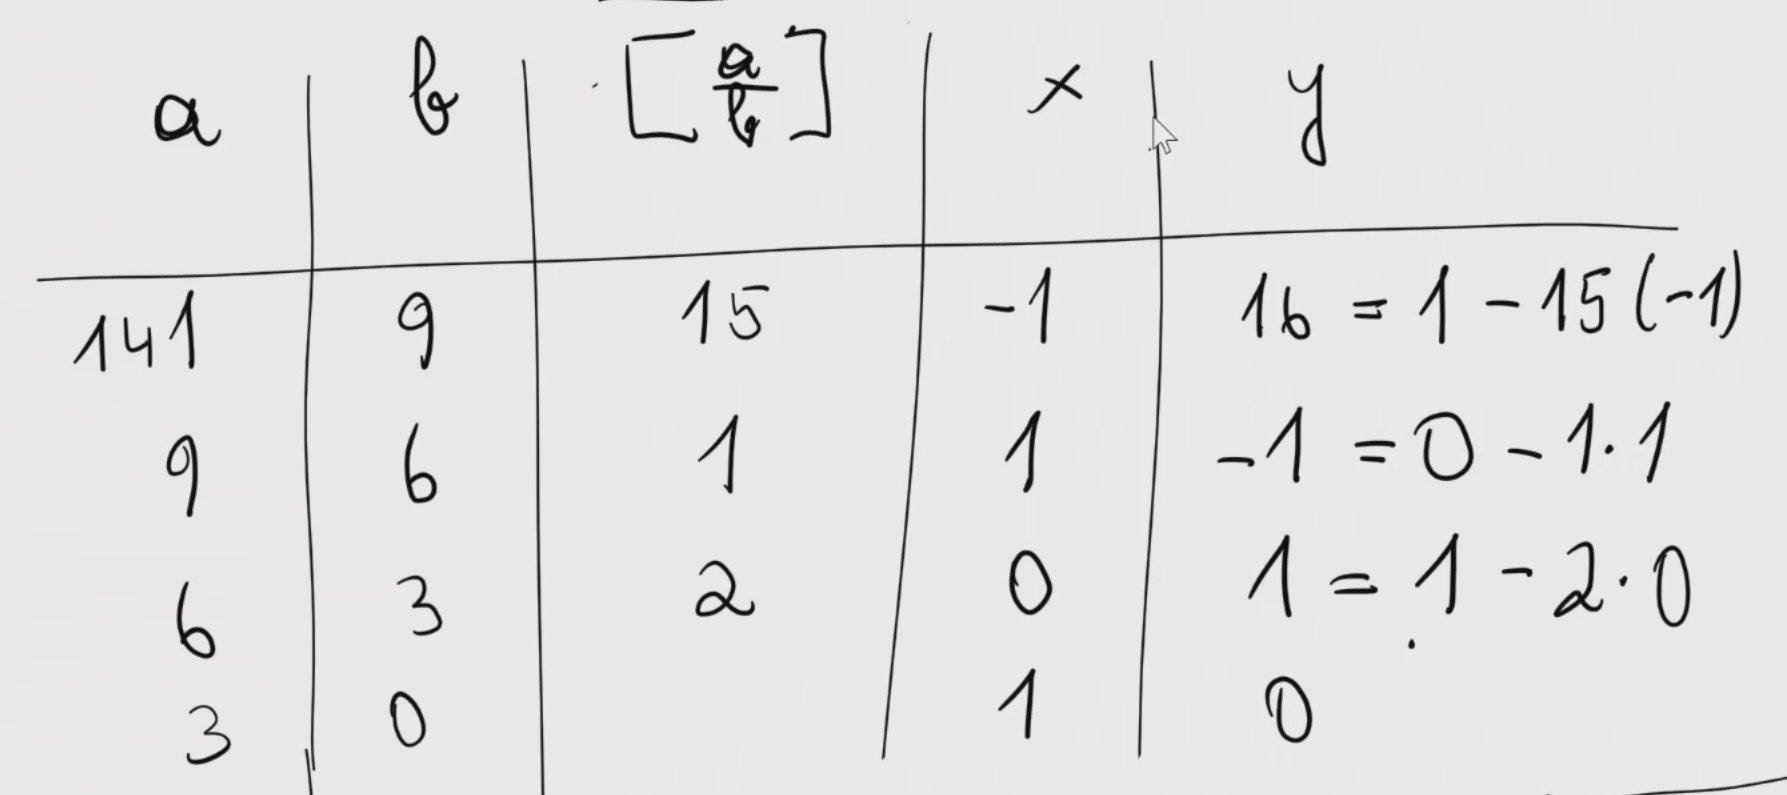 a b [a/b] x y
141 9 15 -1 16 = 1 - 15(-1)
9 6 1 1 -1 = 0 - 1·1
6 3 2 0 1 = 1 - 2·0
3 0 1 0